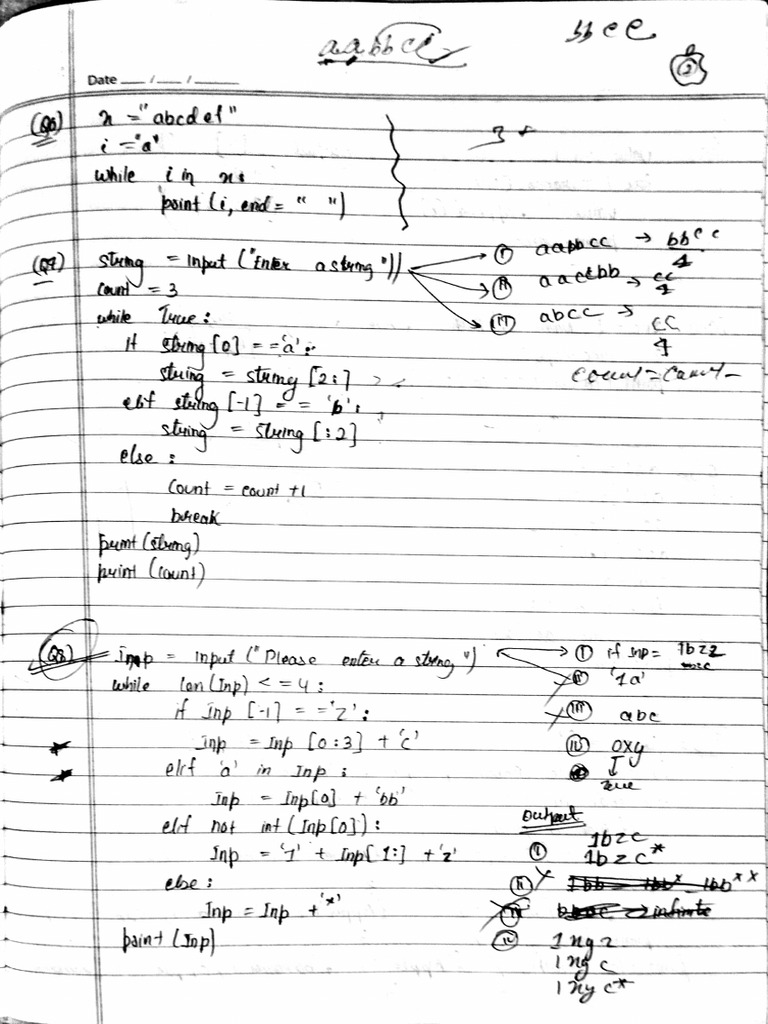 aabbcc
bbcc
Date __ / __ / ____
2
(Q6) x = "abcdef"
i = "a"
while i in x:
print (i, end = " ")
3 *
(Q7) string = input ("Enter a string")
count = 3
while True:
if string [0] == 'a':
string = string [2:]
elif string [-1] == 'b':
string = string [:2]
else:
count = count +1
break
print (string)
print (count)
(I) aabbcc → bbcc
4
(II) aaccbb → cc
4
(III) abcc → cc
4
count = count -
(Q8) Inp = input ("Please enter a string")
while len(Inp) <= 4:
if Inp [-1] == 'z':
Inp = Inp [0:3] + 'c'
elif 'a' in Inp:
Inp = Inp[0] + 'bb'
elif not int (Inp[0]):
Inp = '1' + Inp[1:] + 'z'
else:
Inp = Inp + '*'
print (Inp)
(I) if Inp = 1bzz
(II) '1a'
(III) abc
(IV) 0xy
↓
zero
Output
(I) 1bzc
1bzc*
(II) 1bb 1bb* 1bb**
(III) → infinite
(IV) 1xyz
1xyc
1xyc*